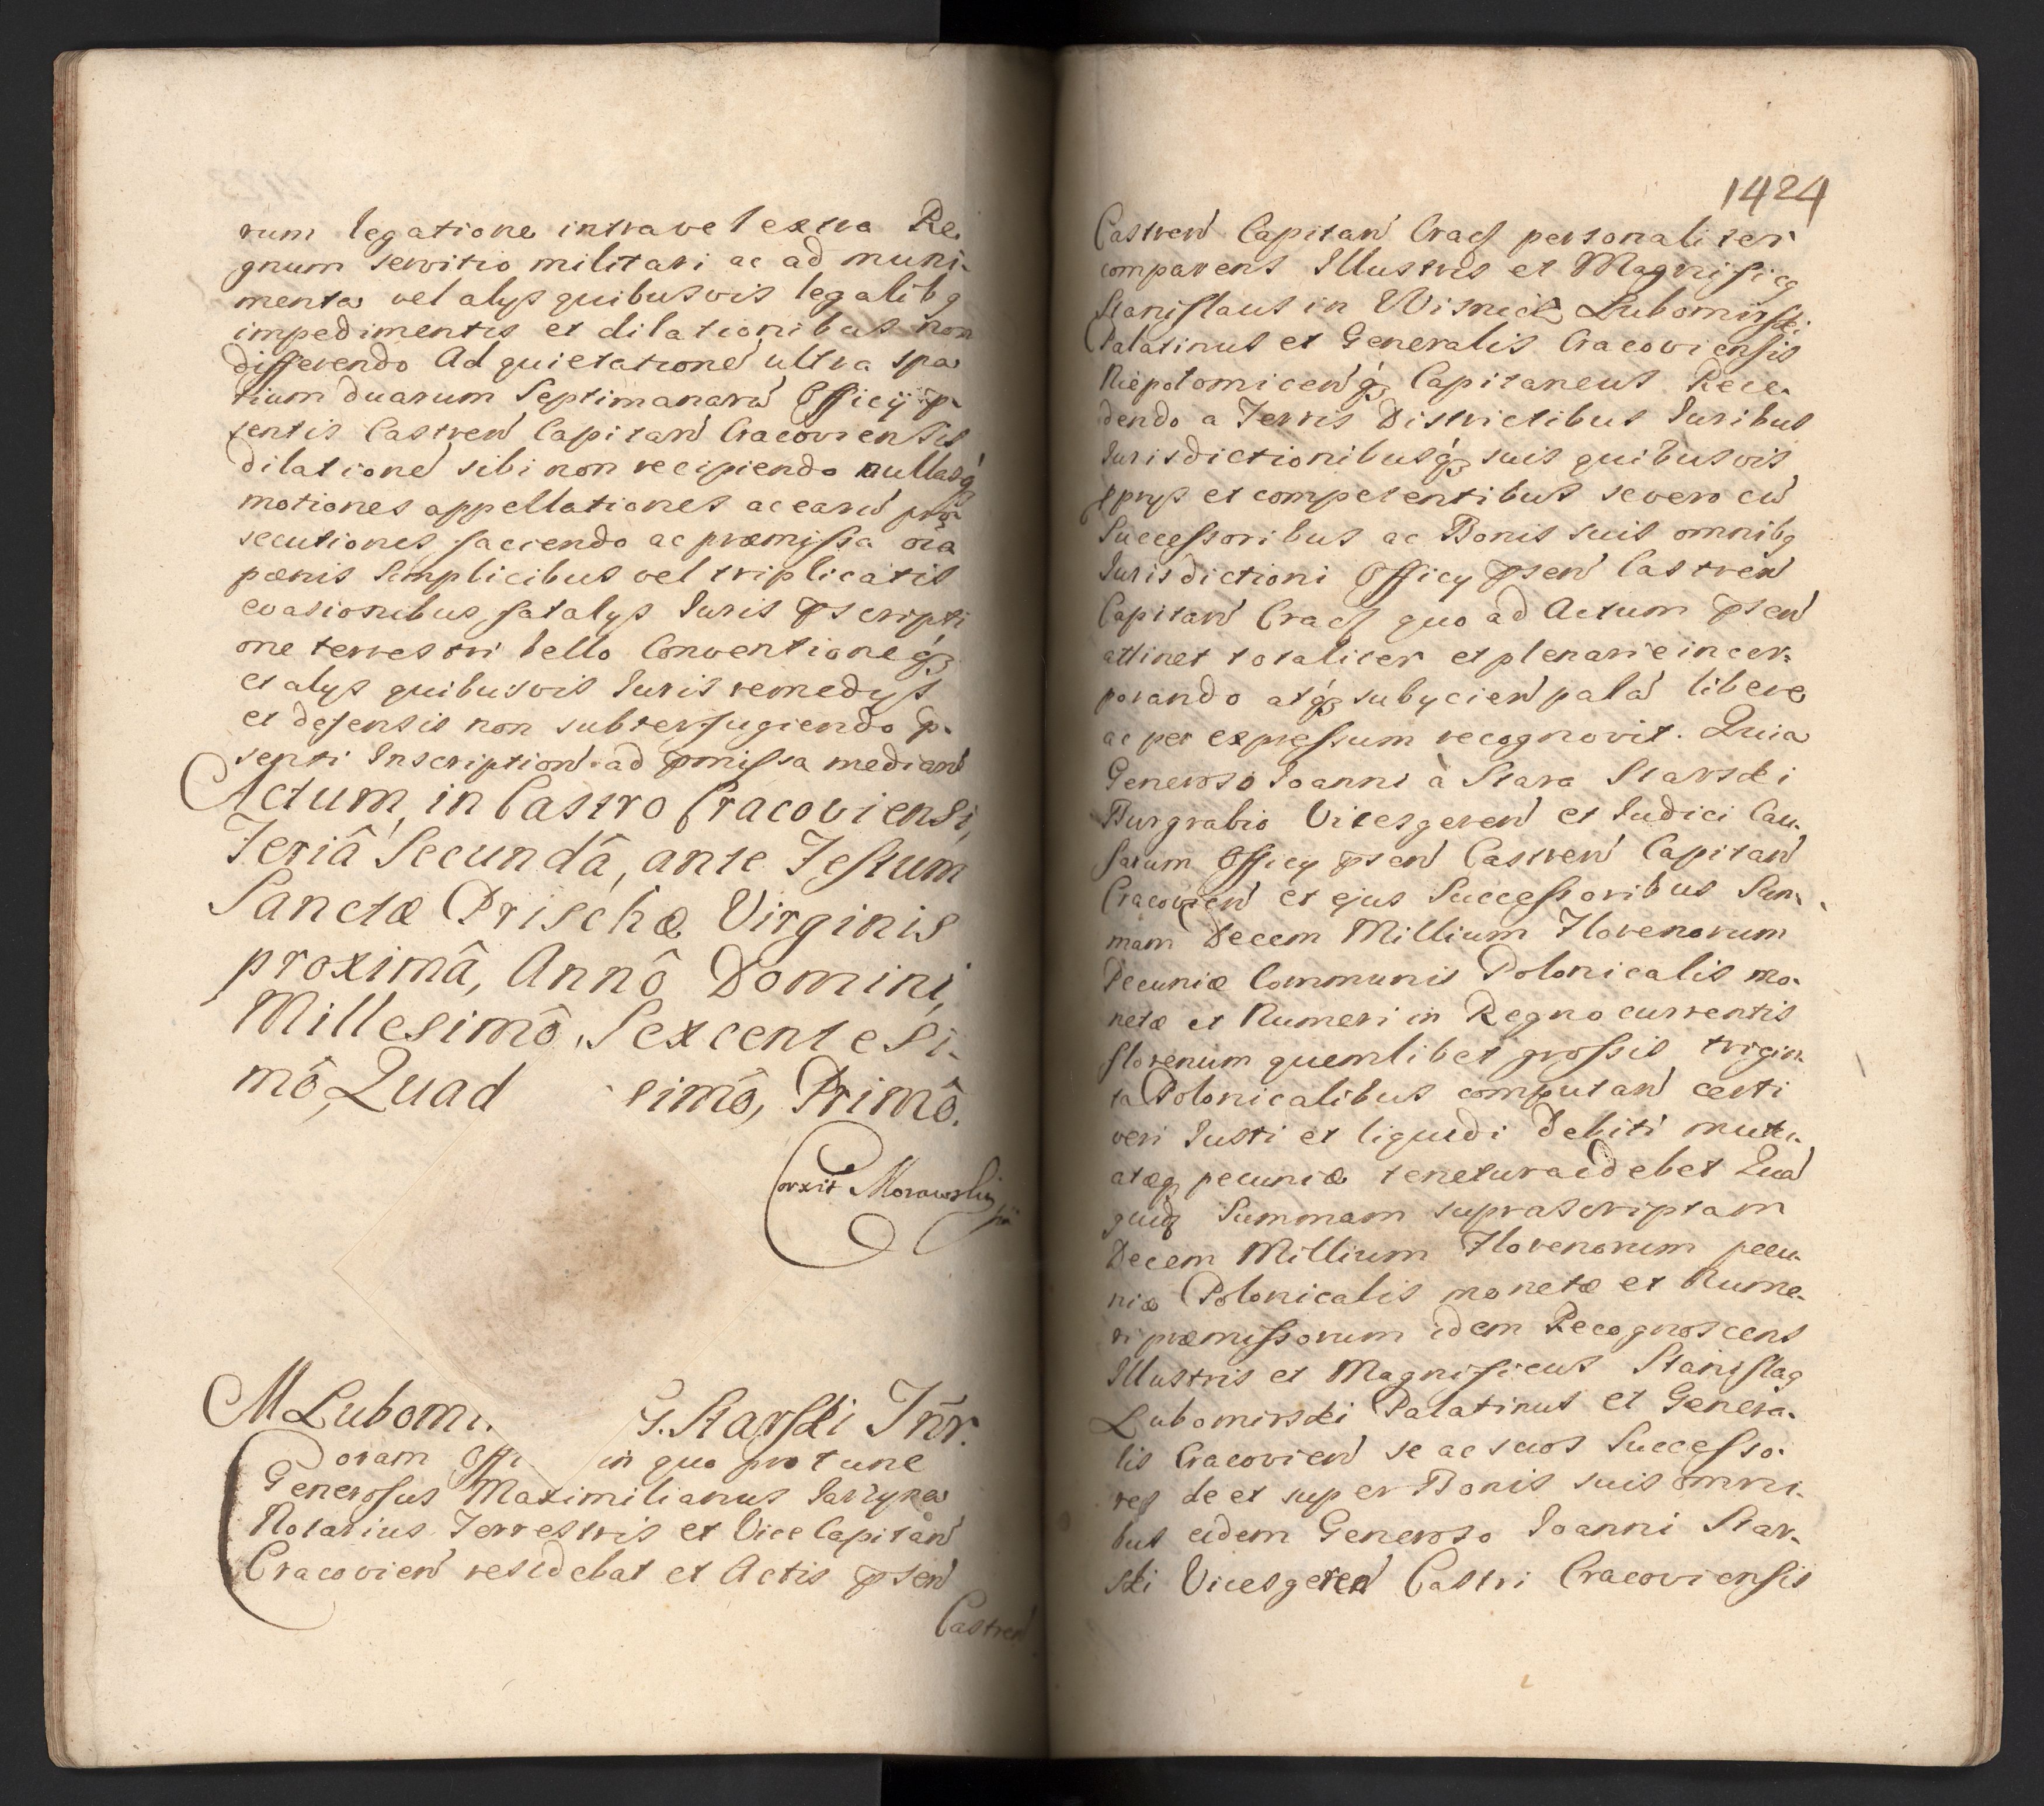 rum legatione intra vel extra Re-
gnum servitio militari ac ad muni-
menta vel alys quibusvis legalibq
impedimentis et dilationibus non
differendo Ad quietatione ultra spa
tium duarum Septimanaru Officij p-
sentis Castren Capitan Cracoviensis
dilatione sibi non recipiendo nullasq
motiones appellationes ac earu pro
secutiones faciendo ac præmissa oia
pœnis simplicibus vel triplicatis
evasionibus fatalys Iuris pscripti
one terrestri bello Conventioneq
et alys quibusvis Iuris remedys
et defensis non subterfugiendo p-
senti Inscription ad pmissa median
Actum in Castro Cracoviensi,
Feriâ Secundâ, ante Festum
Sanctæ Prischæ Virginis
proximâ, Annô Domini,
Millesimô, Sexcentesi-
mô, Quad simô, Primô.
Corxit Morawski
M Lubomi. G. Starski Inr.
Coram Offi in quo pro tunc
Generosus Maximilianus Iarzyna
Notarius Terrestris et Vice Capitan
Cracovien residebat et Actis psen
Castren
1424
Castren Capitan Crac personaliter
comparens Illustris et Magnificq
Stanislaus in Wisnicz Lubomirski
Palatinus et Generalis Cracoviensis
Niepolomicenq Capitaneus Rece-
dendo a Terris Districtibus Iuribus
Iurisdictionibusq suis quibusvis
pprys et competentibus se vero cu
Successoribus ac Bonis suis omnibq
Iurisdictioni Officy psen Castren
Capitan Crac quo ad Actum psen
attinet totaliter et plenarie incor-
porando atq subycien pala libere
ac per expressum recognovit. Quia
Generoso Ioanni à Stara Starski
Burgrabio Vicesgeren et Iudici Cau-
sarum Officy psen Castren Capitan
Cracovien et ejus Successoribus Sum-
mam Decem Millium Florenorum
Pecuniæ Communis Polonicalis mo-
netæ et Numeri in Regno currentis
florenum quemlibet grossis trigin-
ta Polonicalibus computan certi
veri Iusti et liquidi Debiti mutu-
atæq pecuniæ tenetur ac debet Qua
quid Summam suprascriptam
Decem Millium Florenorum pecu-
niæ Polonicalis monetæ et Nume-
ri præmissorum idem Recognoscens
Illustris et Magnificus Stanislaq
Lubomirski Palatinus et Genera-
lis Cracovien se ac suos Successo-
res de et super Bonis suis omni-
bus eidem Generoso Ioanni Star-
ski Vicesgeren Castri Cracoviensis